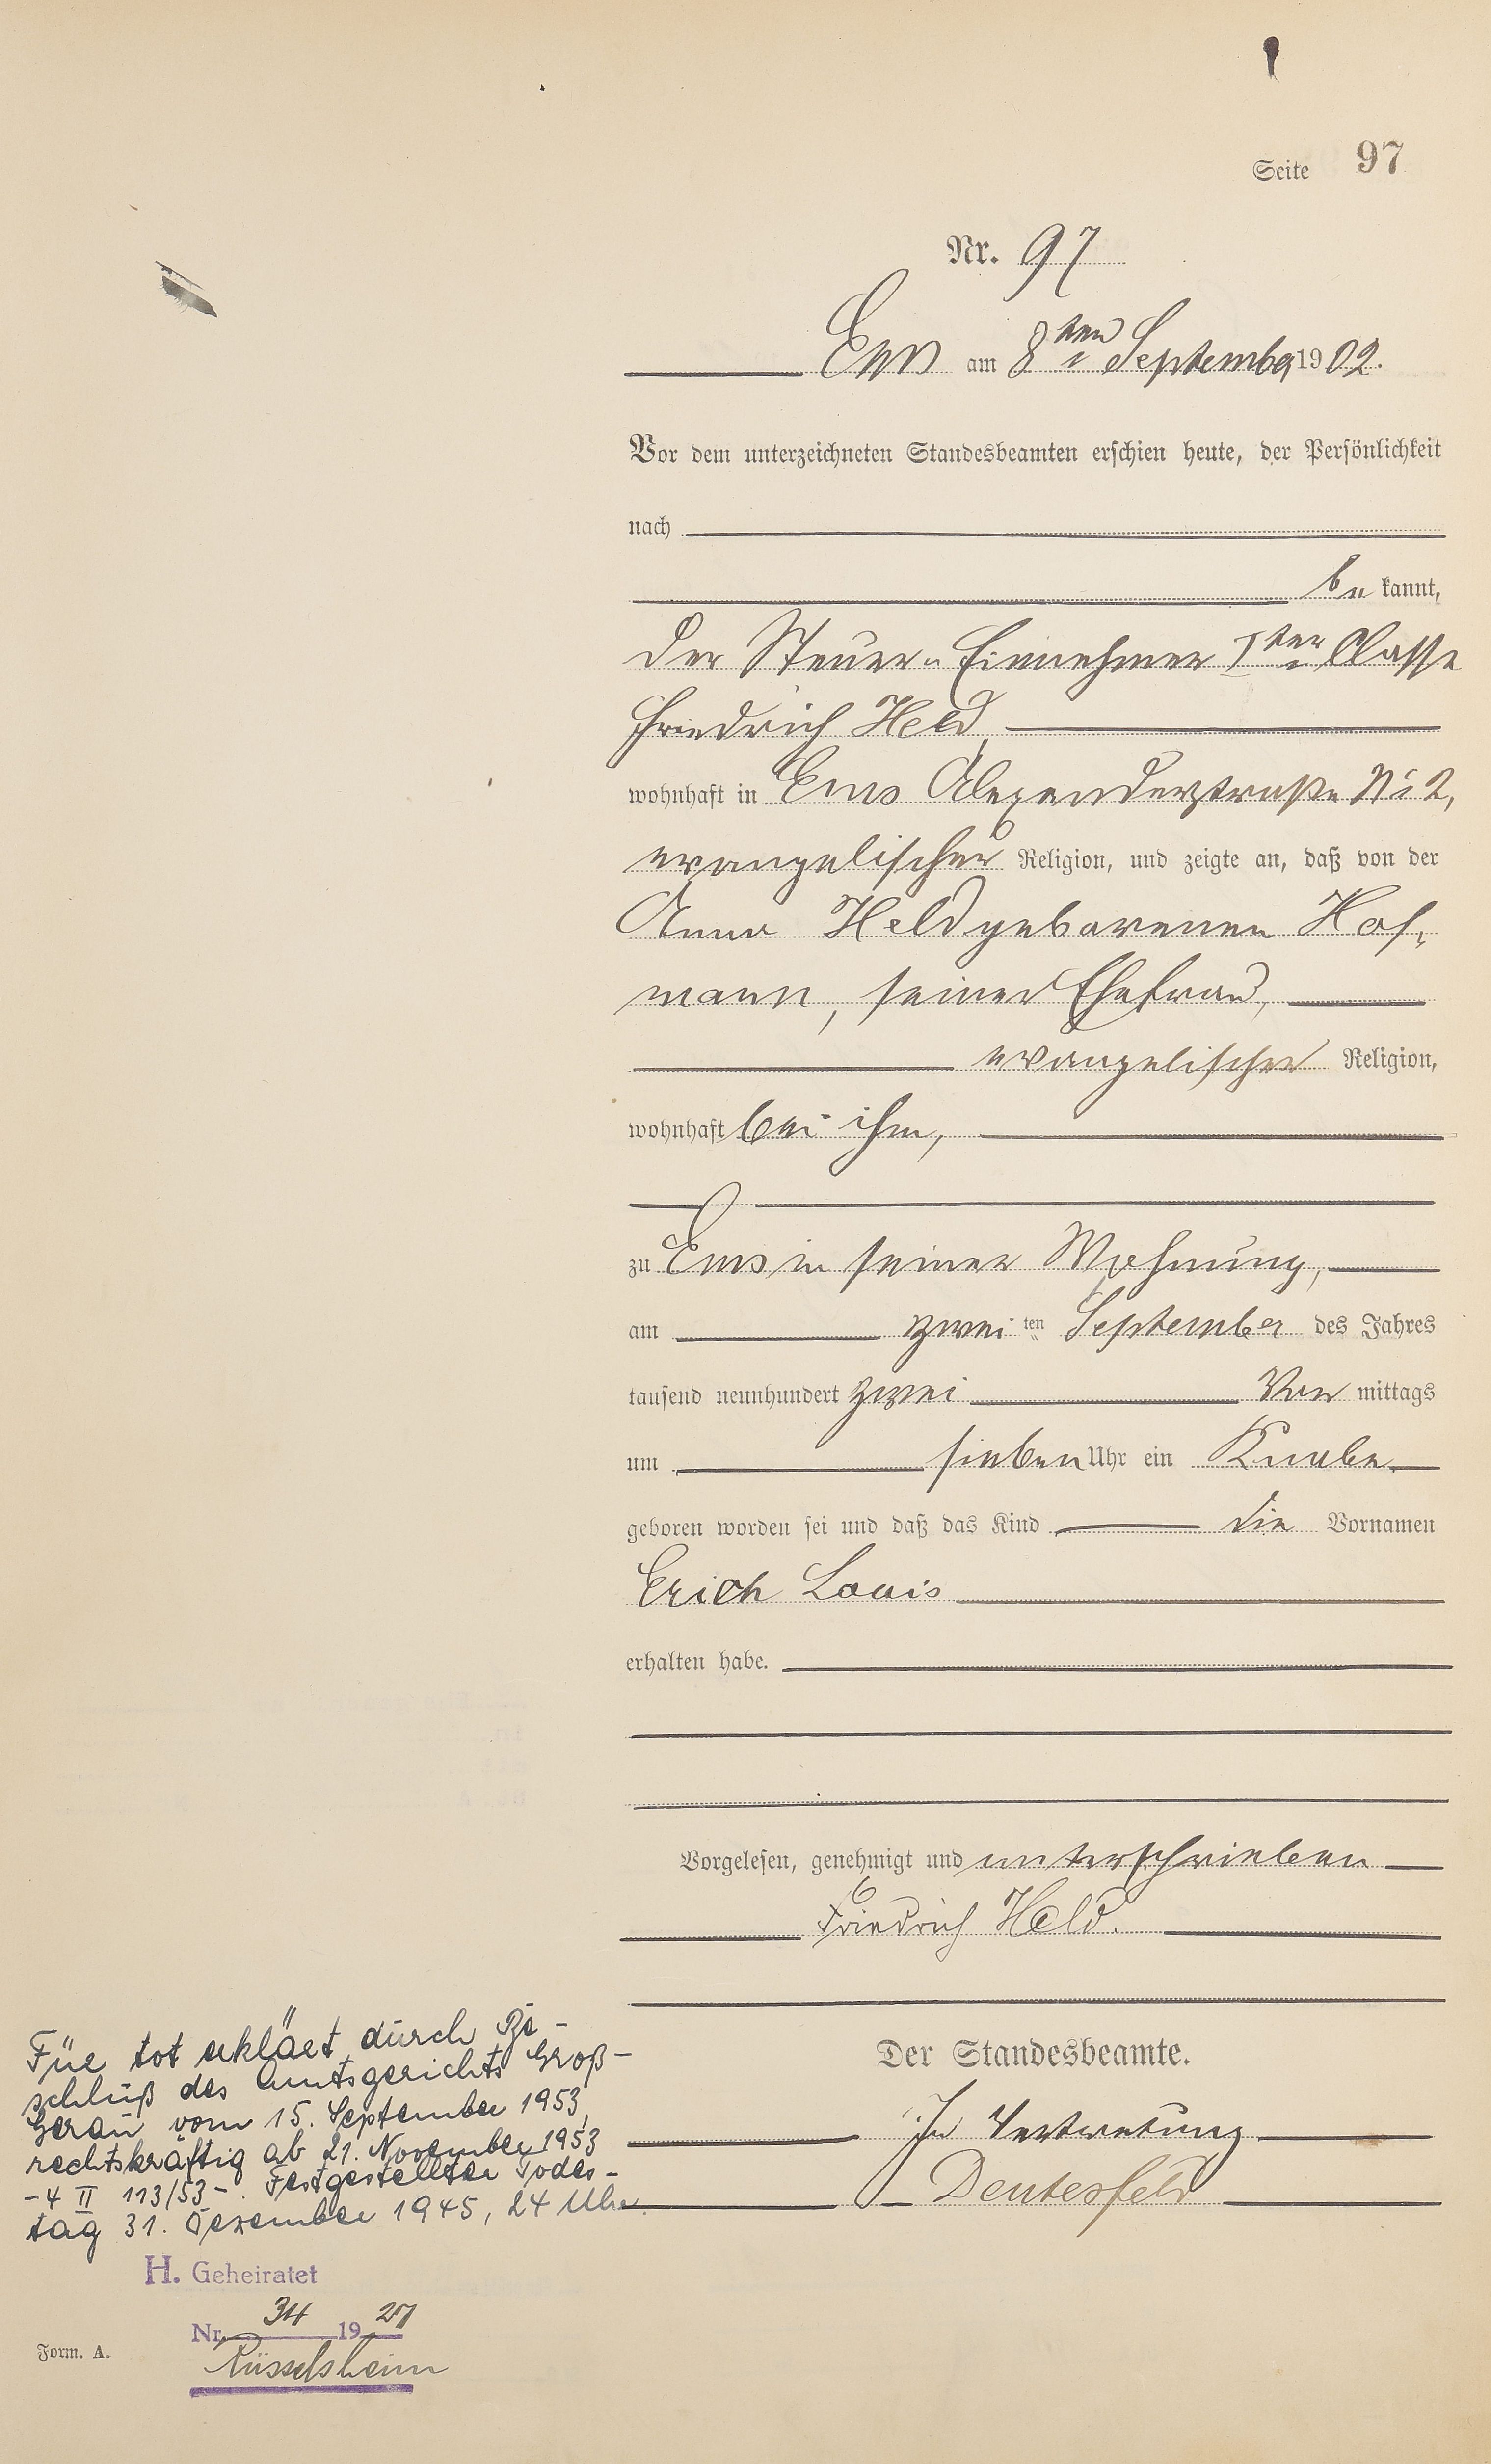 Seite 97
Nr. 97
Ems am 8ten September 1902.
Vor dem unterzeichneten Standesbeamten erschien heute, der Persönlichkeit
nach
be kannt,
der Steuer-Einnehmer Iter Classe
Friedrich Held,
wohnhaft in Ems Alexanderstraße № 2,
evangelischer Religion, und zeigte an, daß von der
Anna Held geborenen Hof-
mann, seiner Ehefrau,
evangelischer Religion,
wohnhaft bei ihm,
zu Ems in seiner Wohnung,
am zwei ten September des Jahres
tausend neunhundert zwei Vor mittags
um sieben Uhr ein Knabe
geboren worden sei und daß das Kind die Vornamen
Erich Louis
erhalten habe.
Vorgelesen, genehmigt und unterschrieben
Friedrich Held.
Der Standesbeamte.
In Vertretung
Deutesfeld
Für tot erklärt durch Be-
schluß des Amtsgerichts Groß-
Gerau vom 15. September 1953,
rechtskräftig ab 21. November 1953
-4 II 113/53-. Festgestellter Todes-
tag 31. Dezember 1945, 24 Uhr.
H. Geheiratet
Nr. 34 1927
Rüsselsheim
Form. A.